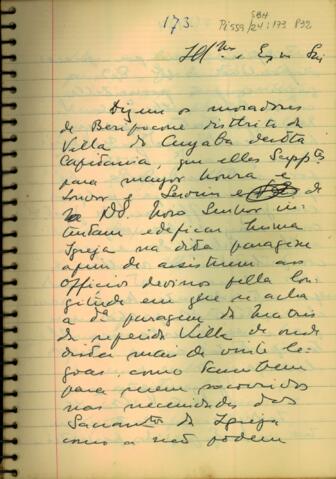 173
SBH
Pi 59a/24:173 P32
Illmo e Exmo Snr
Dizem os moradores
de Beripocone districto da
Villa do Cuyabá desta
Capitania, que elles Suppes
para mayor honra e
Louvor e Serviço de
Ds. Nosso Senhor in-
tentam edificar huma
Igreja na dita paragem
afim de assistirem aos
Officios devinos pella lon-
gitude em que se acha
a da paragem da Matris
da referida Villa de onde
dista mais de vinte le-
goas, como tambem
para serem socorridos
nas necessidades dos
Sacramtos da Igreja
como a não podem